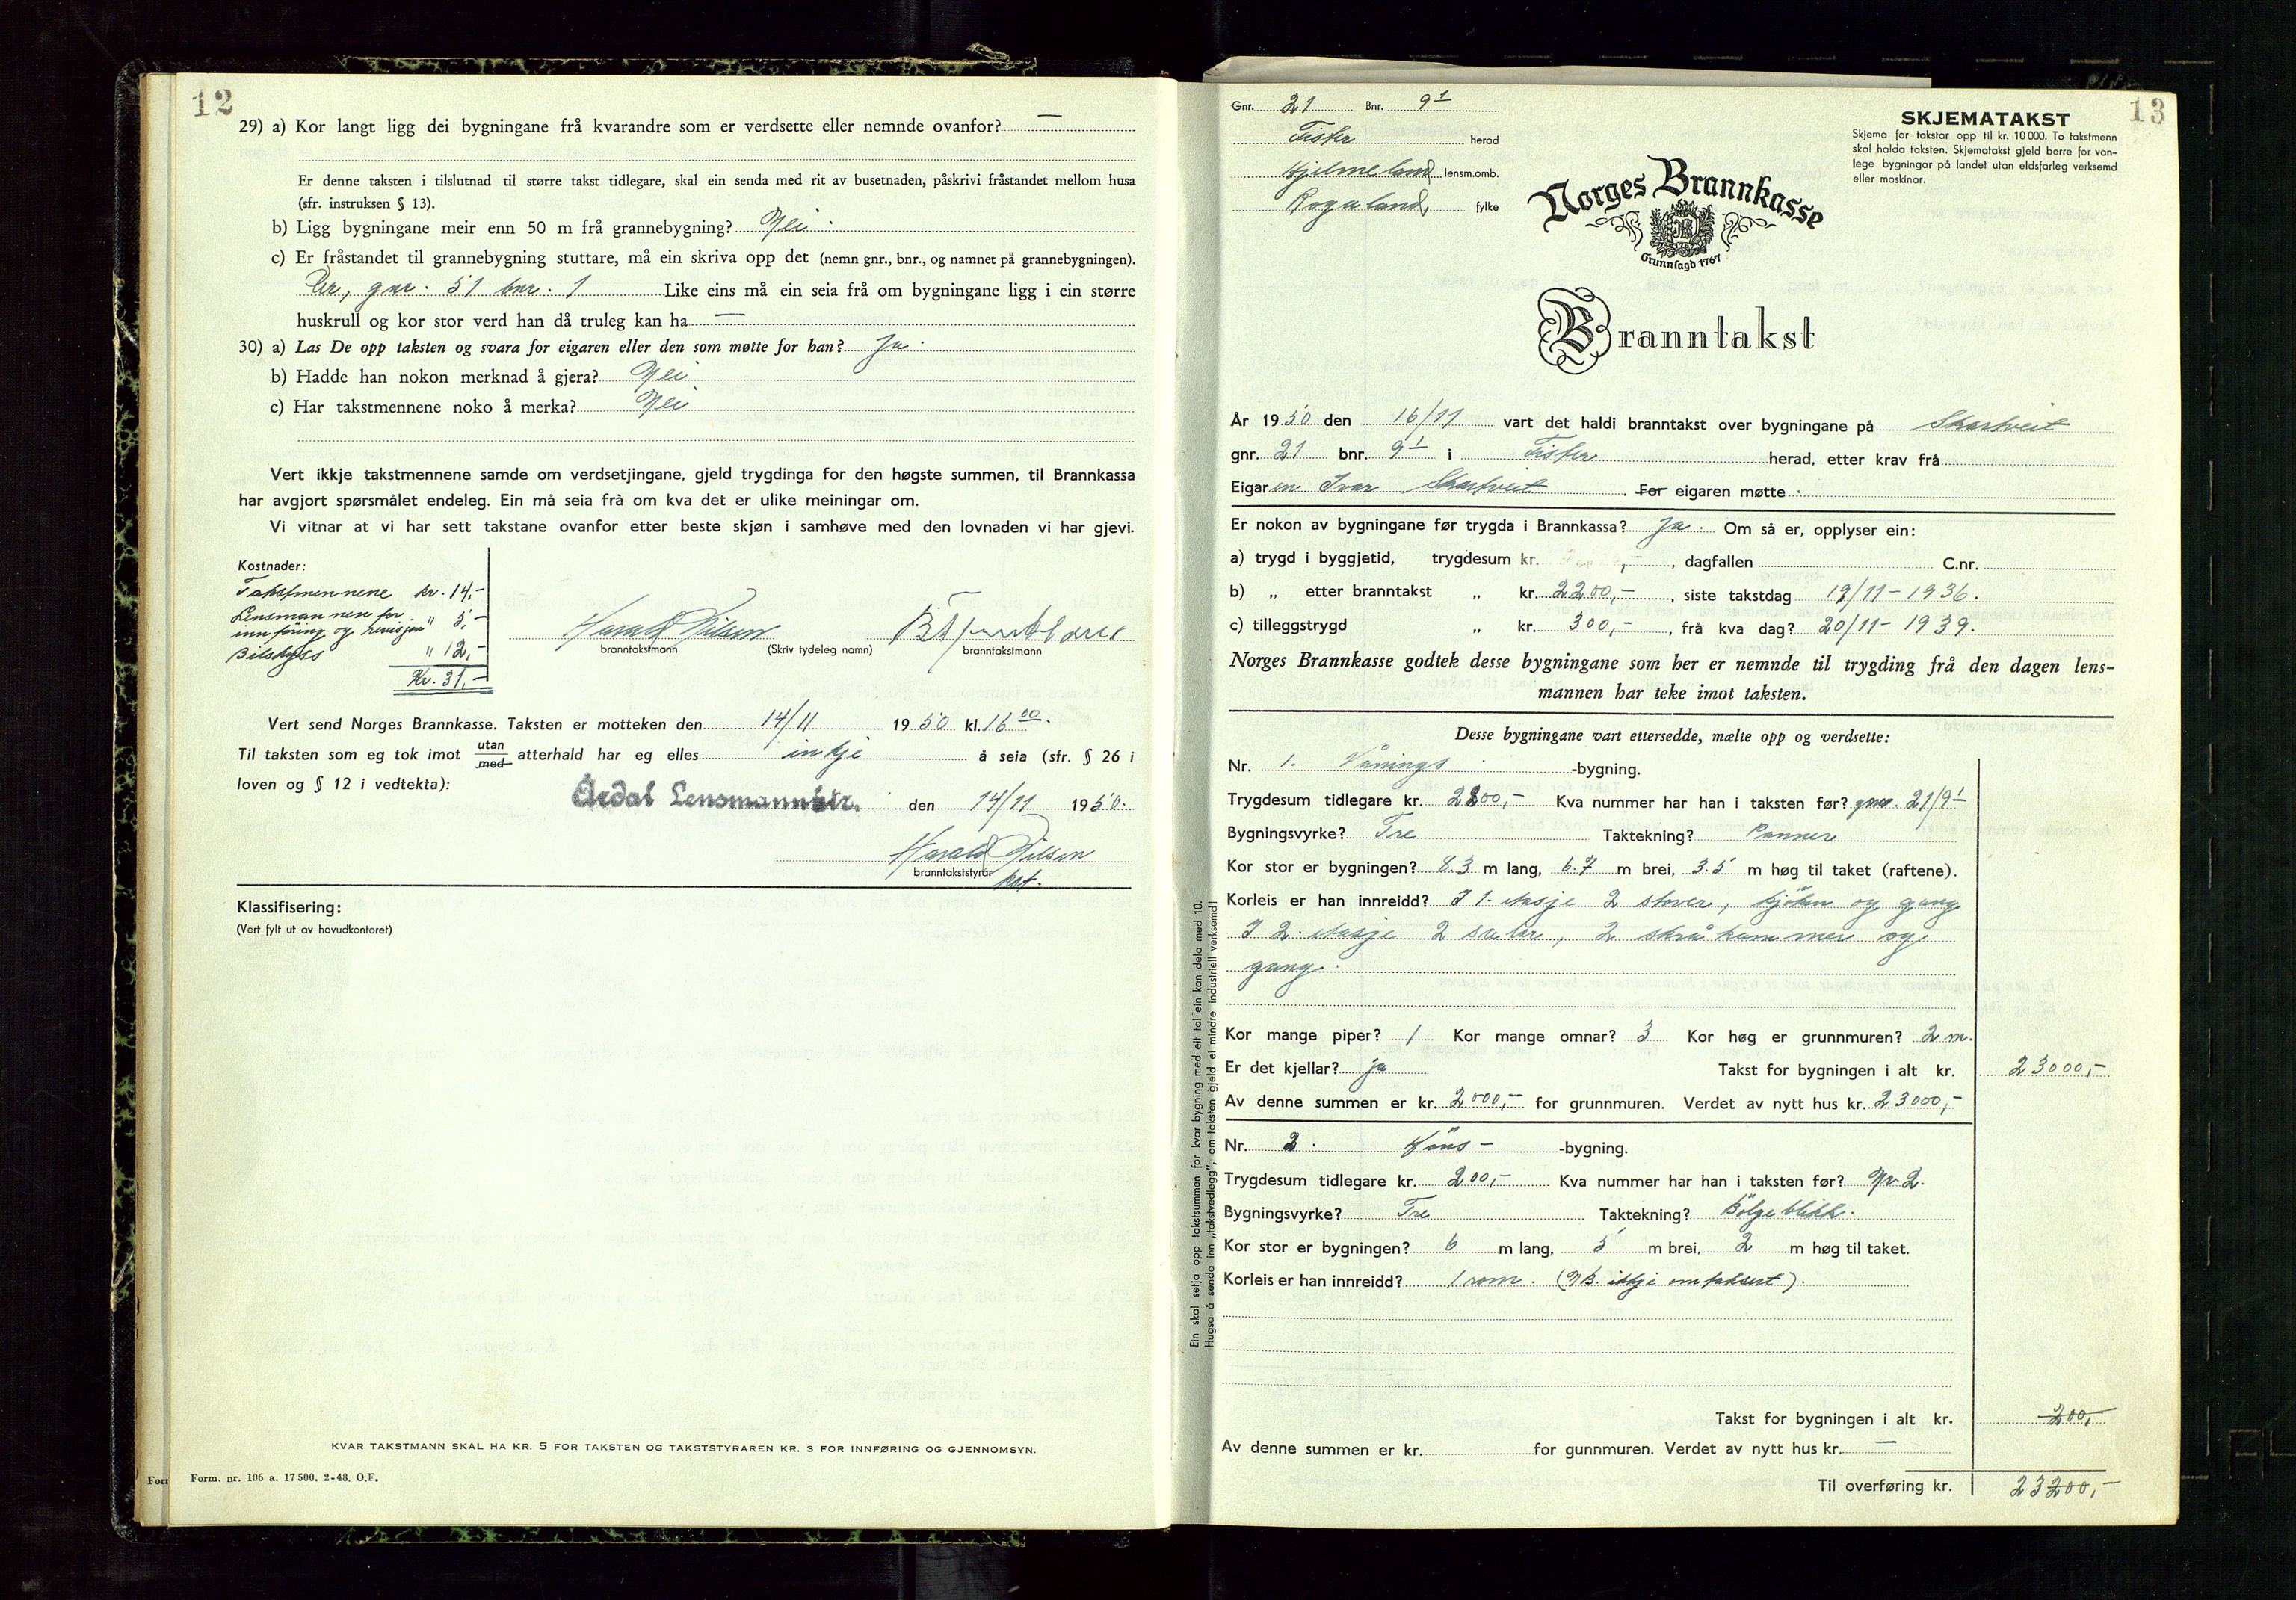 12
29) a) Kor langt ligg dei bygningane frå kvarandre som er verdsette eller nemnde ovanfor? —
Er denne taksten i tilslutnad til større takst tidlegare, skal ein senda med rit av busetnaden, påskrivi fråstandet mellom husa
(sfr. instruksen § 13).
b) Ligg bygningane meir enn 50 m frå grannebygning? Nei.
c) Er fråstandet til grannebygning stuttare, må ein skriva opp det (nemn gnr., bnr., og namnet på grannebygningen).
gnr. 51 bnr. 1 Like eins må ein seia frå om bygningane ligg i ein større
huskrull og kor stor verd han då truleg kan ha —
30) a) Las De opp taksten og svara for eigaren eller den som møtte for han? Ja.
b) Hadde han nokon merknad å gjera? Nei
c) Har takstmennene noko å merka? Nei
Vert ikkje takstmennene samde om verdsetjingane, gjeld trygdinga for den høgste summen, til Brannkassa
har avgjort spørsmålet endeleg. Ein må seia frå om kva det er ulike meiningar om.
Vi vitnar at vi har sett takstane ovanfor etter beste skjøn i samhøve med den lovnaden vi har gjevi.
Kostnader:
Takstmennene kr. 14,-
Lensmannen for
innføring og revisjon " 5,-
Bilskyss " 12,-
Kr. 31,-
Harald Nilsen
branntakstmann (Skriv tydeleg namn) branntakstmann
Vert send Norges Brannkasse. Taksten er motteken den 14/11 1950 kl. 16 00.
Til taksten som eg tok imot utan/med atterhald har eg elles inkje å seia (sfr. § 26 i
loven og § 12 i vedtekta):
Årdal Lensmannktr. den 14/11 1950.
Harald Nilsen
branntakststyrar
kst.
Klassifisering:
(Vert fylt ut av hovudkontoret)
KVAR TAKSTMANN SKAL HA KR. 5 FOR TAKSTEN OG TAKSTSTYRAREN KR. 3 FOR INNFØRING OG GJENNOMSYN.
Form. nr. 106 a. 17 500. 2-48. O.F.
Forr
13
Gnr. 21 Bnr. 9 1
Fister herad
Hjelmeland lensm.omb.
Rogaland, fylke
SKJEMATAKST
Skjema for takstar opp til kr. 10 000. To takstmenn
skal halda taksten. Skjematakst gjeld berre for van-
lege bygningar på landet utan eldsfarleg verksemd
eller maskinar.
Norges Brannkasse
Grunnlagd 1767
Branntakst
År 1950 den 16/11 vart det haldi branntakst over bygningane på Skartveit
gnr. 21 bnr. 9 1 i Fister herad, etter krav frå
Eigaren Ivar Skartveit. For eigaren møtte.
Er nokon av bygningane før trygda i Brannkassa? Ja. Om så er, opplyser ein:
a) trygd i byggjetid, trygdesum kr. , dagfallen C.nr.
b) „ etter branntakst „ kr. 2200,- , siste takstdag 19/11-1936.
c) tilleggstrygd „ kr. 300,- , frå kva dag? 20/11-1939.
Norges Brannkasse godtek desse bygningane som her er nemnde til trygding frå den dagen lens-
mannen har teke imot taksten.
Desse bygningane vart ettersedde, mælte opp og verdsette:
Nr. 1. Vånings -bygning.
Trygdesum tidlegare kr. 2200,- Kva nummer har han i taksten før? gnr. 21/9 1
Bygningsvyrke? Tre Taktekning? Panner
Kor stor er bygningen? 8.3 m lang, 6.7 m brei, 3.5 m høg til taket (raftene).
Korleis er han innreidd? I 1. etasje 2 stover, kjøken og gang
I 2. etasje 2 salar, 2 skråkammer og
gang.
Kor mange piper? 1 Kor mange omnar? 3 Kor høg er grunnmuren? 2 m.
Er det kjellar? ja Takst for bygningen i alt kr. 23000,-
Av denne summen er kr. 2000,- for grunnmuren. Verdet av nytt hus kr. 23000,-
Nr. 2. Høns- -bygning.
Trygdesum tidlegare kr. 200,- Kva nummer har han i taksten før? Nr 2.
Bygningsvyrke? Tre Taktekning? Bölgeblikk.
Kor stor er bygningen? 6 m lang, 5 m brei, 2 m høg til taket.
Korleis er han innreidd? 1 rom. (NB. ikkje omtaksert).
Takst for bygningen i alt kr. 200,-
Av denne summen er kr. for gunnmuren. Verdet av nytt hus kr. —
Til overføring kr. 23200,-
Ein skal setja opp takstsummen for kvar bygning med eit tal ein kan dela med 10.
Hugsa å senda inn „takstvedlegg", om taksten gjeld ei mindre industriell verksemd!